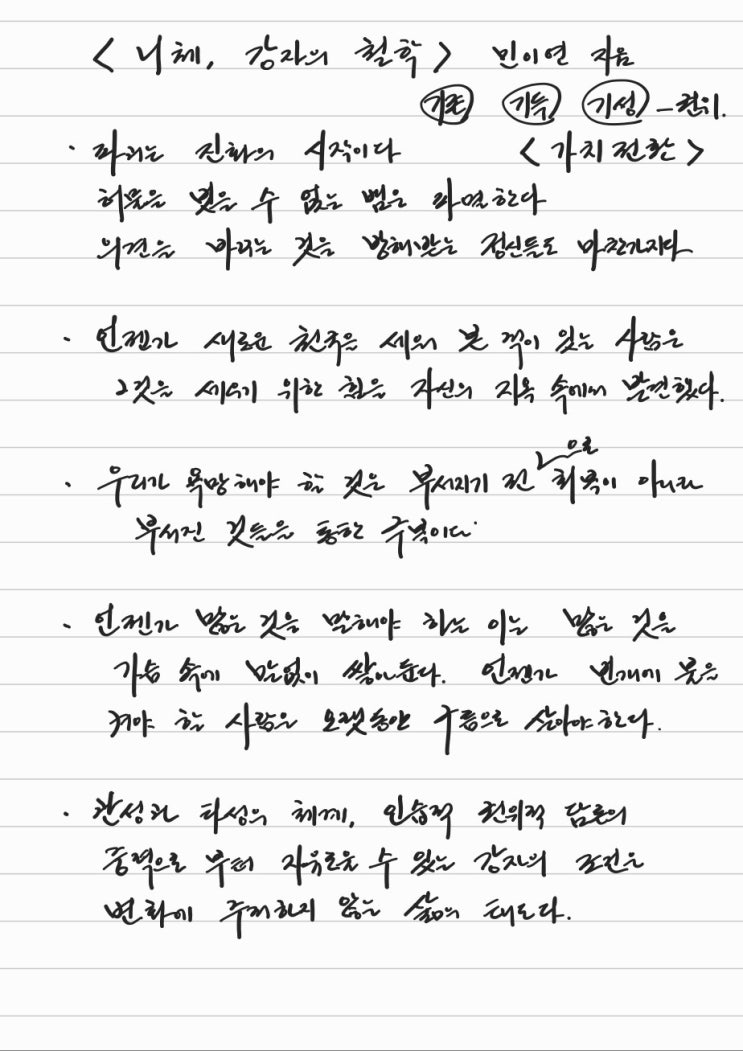 < 니체, 강자의 철학 > 민이연 지음
기존 기득 기성 - 권위.
· 파괴는 진화의 시작이다 < 가치전환 >
허물을 벗을 수 없는 뱀은 파멸한다
의견을 바꾸는 것을 방해받는 정신들도 마찬가지다
· 언젠가 새로운 천국을 세워 본 적이 있는 사람은
그것을 세우기 위한 힘을 자신의 지옥 속에서 발견했다.
· 우리가 욕망해야 할 것은 부서지기 전으로 회복이 아니라
부서진 것들을 통한 극복이다
· 언젠가 많은 것을 말해야 하는 이는 많은 것을
가슴 속에 말없이 쌓아둔다. 언젠가 번개에 불을
켜야 할 사람은 오랫동안 구름으로 살아야한다.
· 관성과 타성의 체계, 인습적 권위적 담론의
중력으로 부터 자유로울 수 있는 강자의 조건은
변화에 주저하지 않는 삶의 태도다.